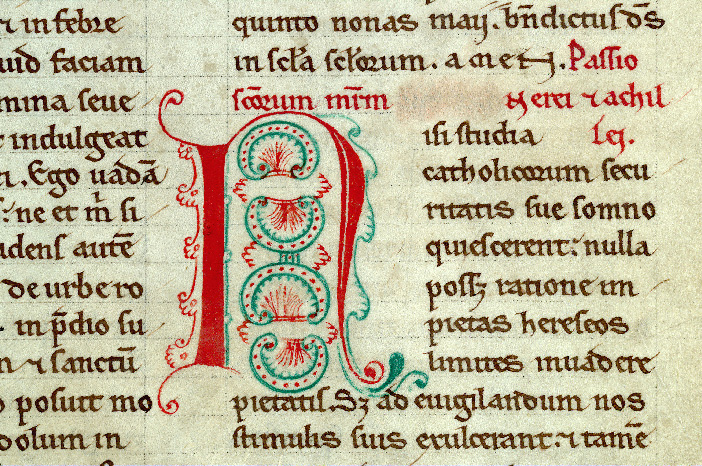 ⁊ in febre
uid faciam
mina seue
t indulgeat
ti. Ego uadā
s: ne et m̄ si
udens autē
de urbe ro
. in p̄dio su
n ⁊ sanctū
o posuit mo
dolum in
quinto nonas maij. bn̄dictus ds̄
in scl̄a scl̄orum. amen. Passio
scōrum mr̄m Nerei ⁊ achil
Nisi studia lei.
catholicorum secu
ritatis sue somno
quiescerent: nulla
possꝫ ratione im
pietas hereseos
limites inuadere
pietatis. Sꝫ ad euigilandum nos
stimulis suis exulcerant: ⁊ tamē